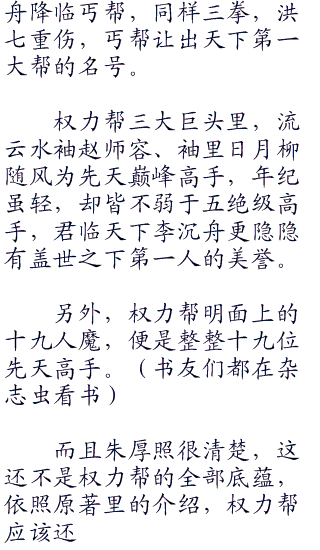 舟降临丐帮，同样三拳，洪
七重伤，丐帮让出天下第一
大帮的名号。
权力帮三大巨头里，流
云水袖赵师容、袖里日月柳
随风为先天巅峰高手，年纪
虽轻，却皆不弱于五绝级高
手，君临天下李沉舟更隐隐
有盖世之下第一人的美誉。
另外，权力帮明面上的
十九人魔，便是整整十九位
先天高手。（书友们都在杂
志虫看书）
而且朱厚照很清楚，这
还不是权力帮的全部底蕴，
依照原著里的介绍，权力帮
应该还